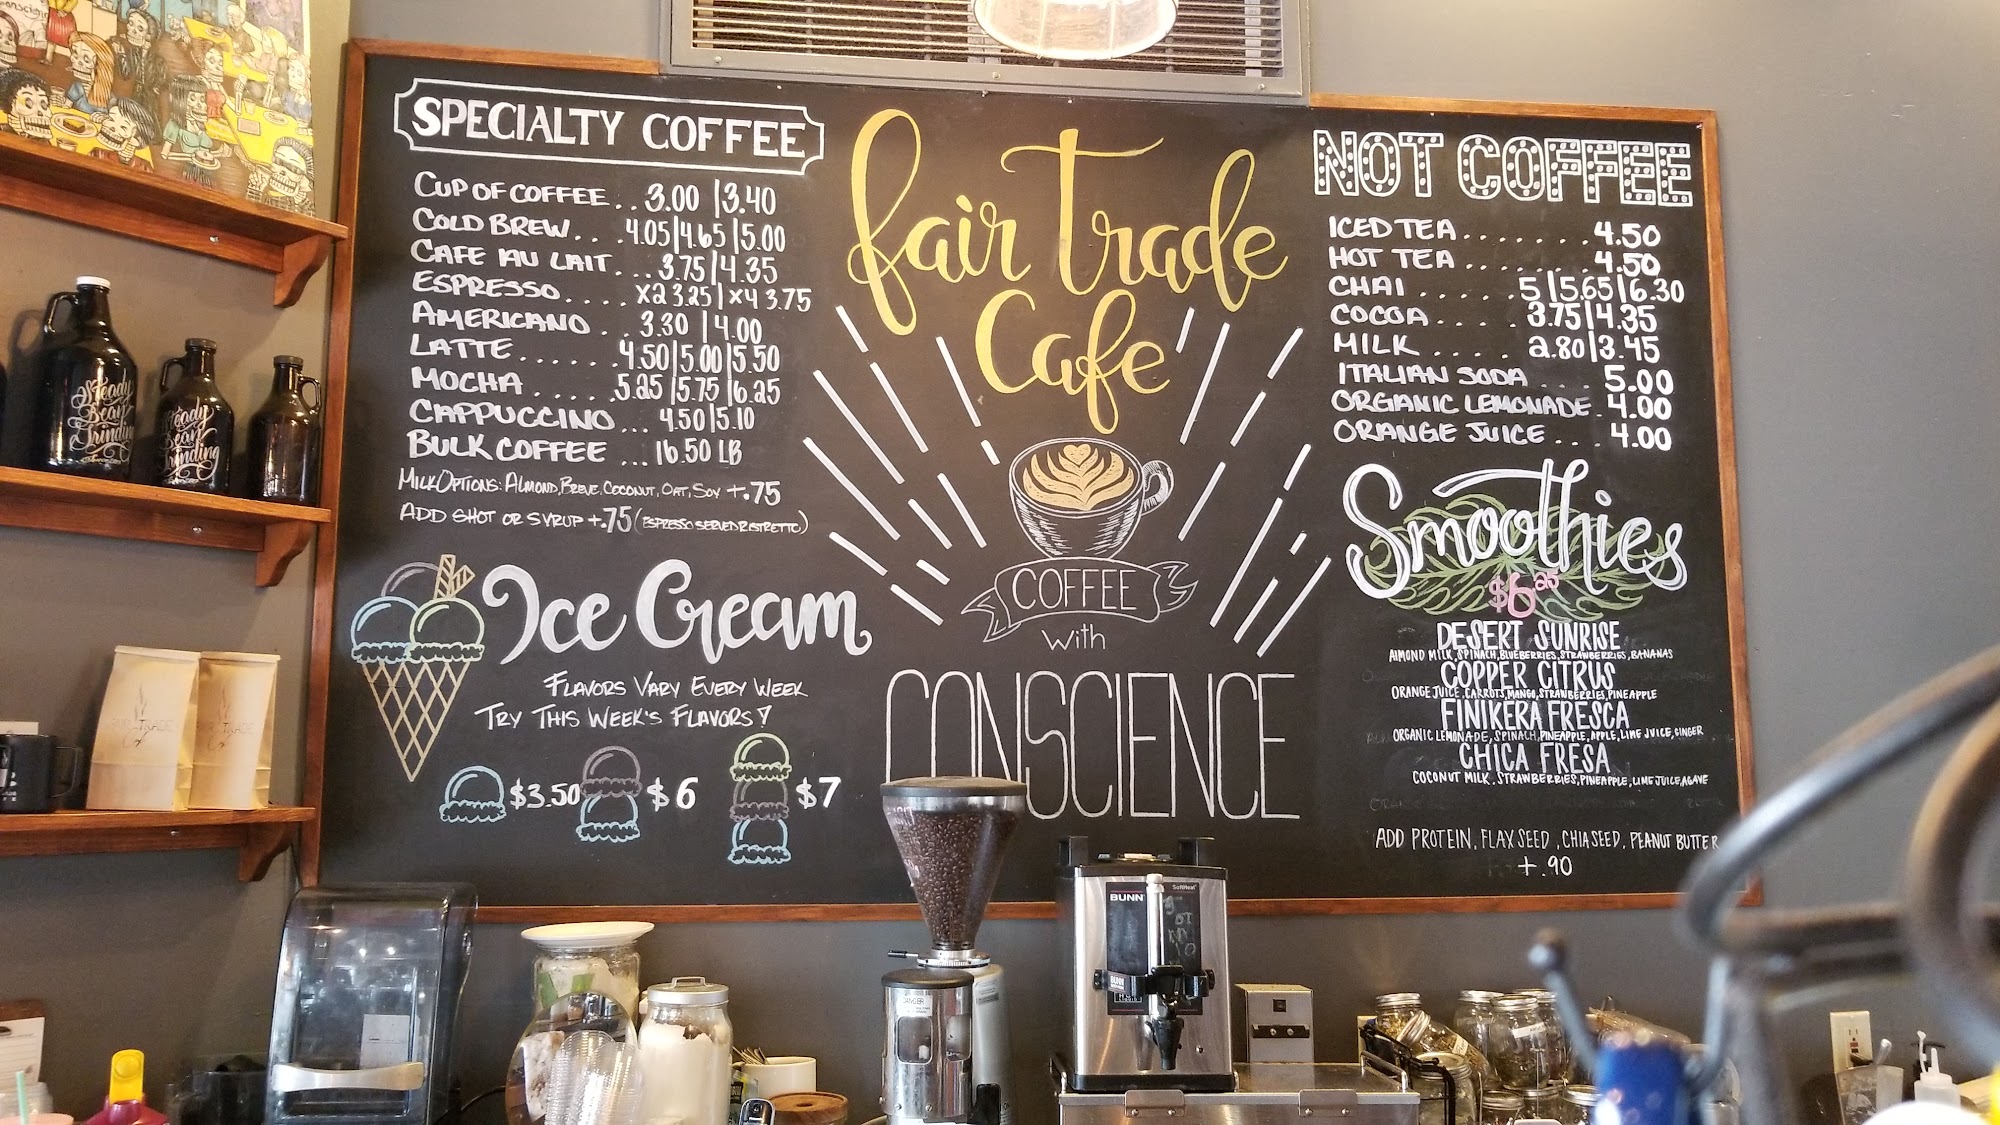 SPECIALTY COFFEE
CUP OF COFFEE .. 3.00 | 3.40
COLD BREW ... 4.05 | 4.65 | 5.00
CAFE AU LAIT ... 3.75 | 4.35
ESPRESSO .... x2 3.25 | x4 3.75
AMERICANO .. 3.30 | 4.00
LATTE ...... 4.50 | 5.00 | 5.50
MOCHA ..... 5.25 | 5.75 | 6.25
CAPPUCCINO ... 4.50 | 5.10
BULK COFFEE ... 16.50 LB
MILK OPTIONS: ALMOND, BREVE, COCONUT, OAT, SOY +.75
ADD SHOT OR SYRUP +.75 (ESPRESSO SERVED RISTRETTO)
Ice Cream
FLAVORS VARY EVERY WEEK
TRY THIS WEEK'S FLAVORS?
$3.50 $6 $7
fair trade
Cafe
COFFEE
with
CONSCIENCE
NOT COFFEE
ICED TEA ....... 4.50
HOT TEA ....... 4.50
CHAI ..... 5 | 5.65 | 6.30
COCOA .... 3.75 | 4.35
MILK .... 2.80 | 3.45
ITALIAN SODA ... 5.00
ORGANIC LEMONADE . 4.00
ORANGE JUICE ... 4.00
Smoothies
$6.25
DESERT SUNRISE
ALMOND MILK, SPINACH, BLUEBERRIES, STRAWBERRIES, BANANAS
COPPER CITRUS
ORANGE JUICE, CARROTS, MANGO, STRAWBERRIES, PINEAPPLE
FINIKERA FRESCA
ORGANIC LEMONADE, SPINACH, PINEAPPLE, APPLE, LIME JUICE, GINGER
CHICA FRESA
COCONUT MILK, STRAWBERRIES, PINEAPPLE, LIME JUICE, AGAVE
ADD PROTEIN, FLAX SEED, CHIA SEED, PEANUT BUTTER
+ .90
Steady
Bean
Grinding
Steady
Bean
Grinding
BUNN
SoftHeat
DANGER